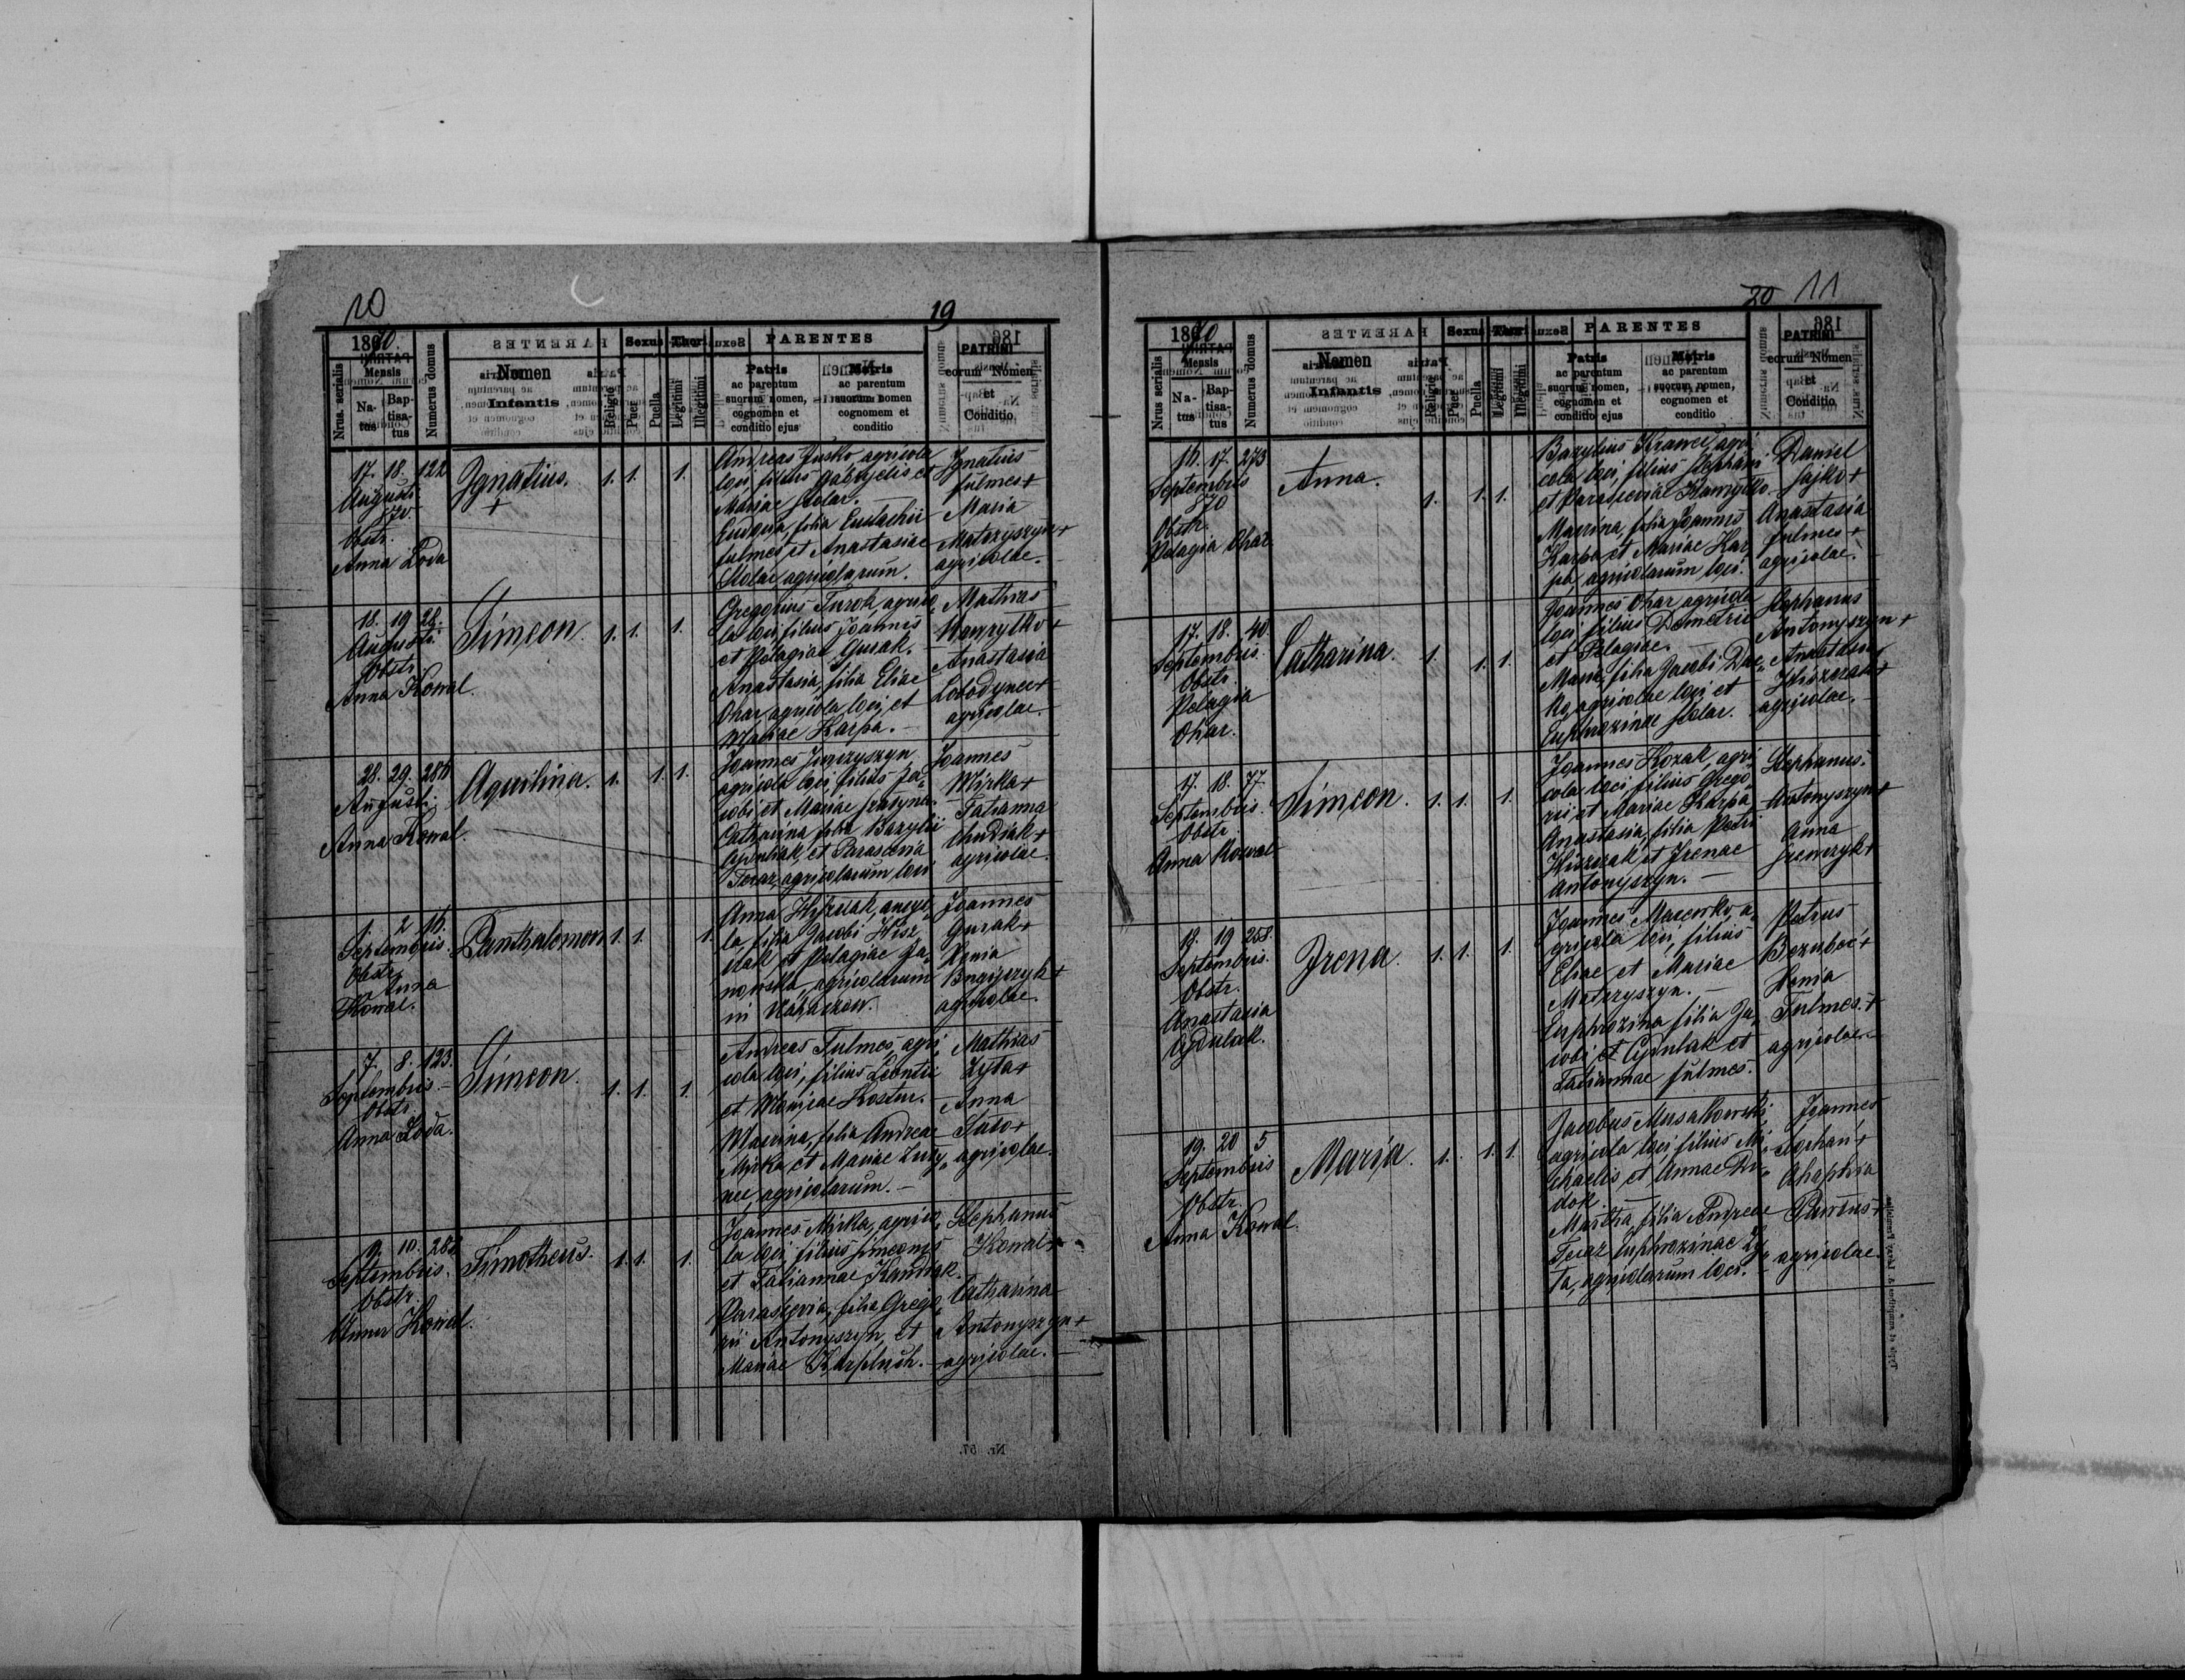 10
19
1870.
Mensis
Natus
Baptisatus
Nrus. serialis
Numerus domus
Nomen
Infantis
Religio
Sexus
Puer
Puella
Thori
Legitimi
Illegitimi
PARENTES
Patris
ac parentum
suorum nomen,
cognomen et
conditio ejus
Matris
ac parentum
suorum nomen
cognomem et
conditio
PATRINI
eorum Nomen
et
Conditio
17. 18. 122
Augusti
870.
Obstr.
Anna Loda
Ignatius.
+
1. 1. 1.
Andreas Jusko agricola
loci, filius Gabrielis et
Mariae Stolar. —
Eudoxia, filia Eustachii
Fulmes et Anastasiae
Stolar agricolarum.
Ignatius
Fulmes +
Maria
Matrzyszyn +
agricolae. —
18. 19 28.
Augusti
Obstr.
Anna Kowal.
Simeon.
1. 1. 1.
Gregorius Turok, agrico
la loci, filius Joannis
et Pelagiae Gusak. —
Anastasia, filia Eliae
Ohar agricola loci, et
Mariae Karpa. —
Mathias
Hawrylko +
Anastasia
Lobodynec +
agricolae. —
28. 29. 284
Augusti.
Anna Kowal.
Aquilina.
1. 1. 1.
Joannes
agricola loci, filius Ja
cobi et Mariae
Catharina filia Bazylii
Cyduliak, et Parascevia
Tecaz, agricolarum loci
Joannes
Mirka +
Tatianna
Chudiak +
agricolae.
1. 2 16.
Septembris.
Obstr.
Anna
Kowal.
Panthalemon
1. 1. 1.
Anna Hiszczak, ancil
la, filia Jacobi Hisz
czak et Pelagiae Ja
nowska, agricolarum
in Nahaczow.
Joannes
Gusak +
Xenia
agricolae.
7. 8. 123.
Septembris. —
Obstr.
Anna Loda.
Simeon.
1. 1. 1.
Andreas Fulmes, agri
cola loci, filius Leontii
et Mariae Kostur.
Mawrina, filia Andreae
Mirka et Mariae Zury
nec agricolarum. —
Mathias
Zyta +
Anna
Tuto +
agricolae.
9. 10. 282
Septembris.
Obstr.
Anna Kowal.
Timotheus.
1. 1. 1.
Joannes Mirka, agrico
la loci filius Simeonis
et Tatiannae Handiak.
Parascevia, filia Grego
rii Antonyszyn, et
Mariae Karpluch. —
Stephanus
Kowal +
Catharina
Antonyszyn +
agricolae. —
Nr. 57.
20 11
1870
Nrus serialis
Mensis
Natus
Baptisatus
Numerus domus
Nomen
Infantis
Religio
Sexus
Puer
Puella
Thori
Legitimi
Illegitimi
PARENTES
Patris
ac parentum
suorum nomen,
cognomen et
conditio ejus
Matris
ac parentum
suorum nomen,
cognomen et
conditio
PATRINI
eorum Nomen
et
Conditio
16. 17. 273
Septembris
870
Obstr.
Pelagia Ohar
Anna.
1. 1. 1.
Bazylius Krawec, agri
cola loci, filius Stephani
et Parasceviae Hawrylko —
Mawrina, filia Joannis
Karpa et Mariae Kar
pa, agricolarum loci.
Daniel
Sajko +
Anastasia
Fulmes +
agricolae.
17. 18. 40
Septembris.
Obstr.
Pelagia
Ohar.
Catharina.
1. 1. 1.
Joannes Ohar agricola
loci filius Demetrii
et Pelagiae. —
Maria, filia Jacobi
agricolae loci, et
Euphrozinae Stolar.
Stephanus
Antonyszyn +
Anastasia
Hiszczak +
agricolae. —
17. 18. 77.
Septembris.
Obstr.
Anna Kowal
Simeon.
1. 1. 1.
Joannes Kozak, agri
cola loci, filius Grego
rii et Mariae Karpa,
Anastasia, filia Petri
Hiszczak et Irenae
Antonyszyn. —
Stephanus
Antonyszyn +
Anna
18. 19 258.
Septembris.
Obstr.
Anastasia
Cydulak.
Irena.
1. 1. 1.
Joannes Macewko, a
gricola loci, filius
Eliae et Mariae
Matrzyszyn. —
Euphrozina filia Ja
cobi et Cydulak et
Tatiannae Fulmes.
Petrus
Bezubec +
Hania
Fulmes. +
agricolae. —
19. 20 5
Septembris
Obstr.
Anna Kowal.
Maria.
1. 1. 1.
Jacobus Musakowski,
agricola loci, filius Mi
chaelis et Annae Du
dok. —
Martha, filia Andreae
Tecaz Euphrozinae Zy
ta, agricolarum loci. —
Joannes
Stephan +
Ahaphia
agricolae.